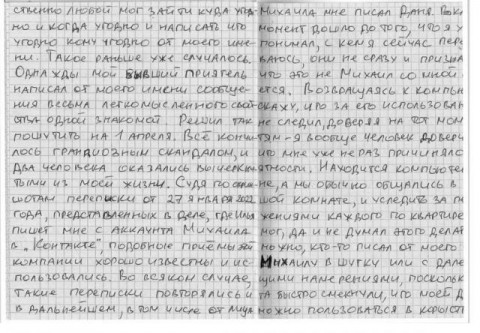 ственно любой мог зайти куда угод-
но и когда угодно и написать что
угодно кому угодно от моего име-
ни. Такое раньше уже случалось.
Однажды мой бывший приятель
написал от моего имени сообще-
ния весьма легкомысленного свой-
ства одной знакомой. Решил так
пошутить на 1 апреля. Всё конч
лось грандиозным скандалом, и
два человека оказались вычеркну
тыми из моей жизни. Судя по
шотам переписки от 27 января 2022
года, представленных в деле,
пишет мне с аккаунта Михаила
в „Контакте“, подобные приёмы
компании хорошо известны и ис-
пользовались. Во всяком случае,
такие переписки повторялись и
в дальнейшем, в том числе от
Михаила мне писал Даня. В
момент дошло до того, что я у
понимал, с кем я сейчас пере
ваюсь, они не сразу и призна
что это не Михаил со мной
ется. Возвращаясь к компью
скажу, что за его использован
не следил, доверяя на тот мом
тям – я вообще человек довер
что мне уже не раз причиняло
ятности. Находится компьюте
не, а мы обычно общались в
шой комнате, и уследить за
жениями каждого по квартире
мог, да и не думал этого делат
но, кто-то писал от моего
Михаилу в шутку или с дале
щими намерениями, поскольк
та быстро смекнули, что моей д
можно пользоваться в корыст